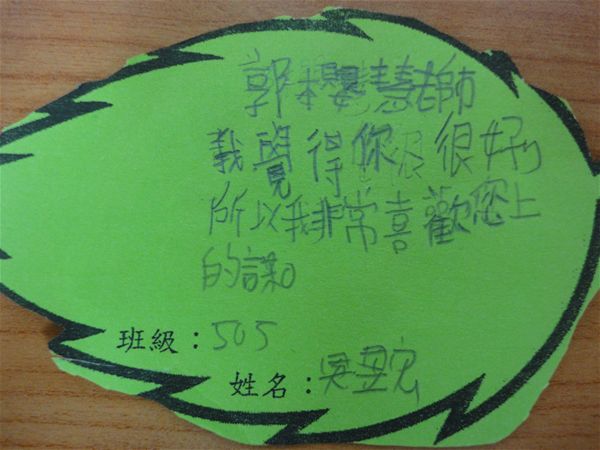 郭櫻慧老師
我覺得你很好,
所以我非常喜歡您上
的課。
班級:505
姓名:吳昱宏